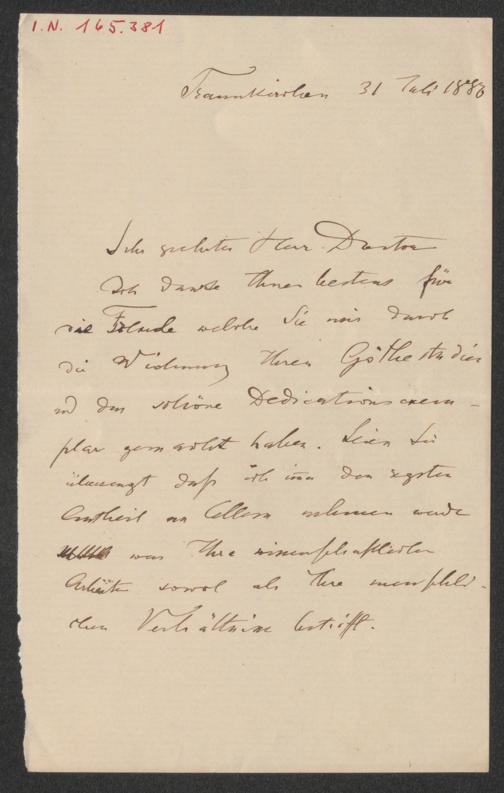 I.N. 165.381
Traunkirchen 31 Juli 1886
Sehr geehrter Herr Doctor
Ich danke Ihnen bestens für
die Freude welche Sie mir durch
die Widmung Ihrer Göthestudien
und das schöne Dedicationsexem-
plar gemacht haben. Seien Sie
überzeugt daß ich immer den regsten
Antheil an Allem nehmen werde
was Ihre wissenschaftlichen
Arbeiten sowol als Ihre menschli-
chen Verhältnisse betrifft.